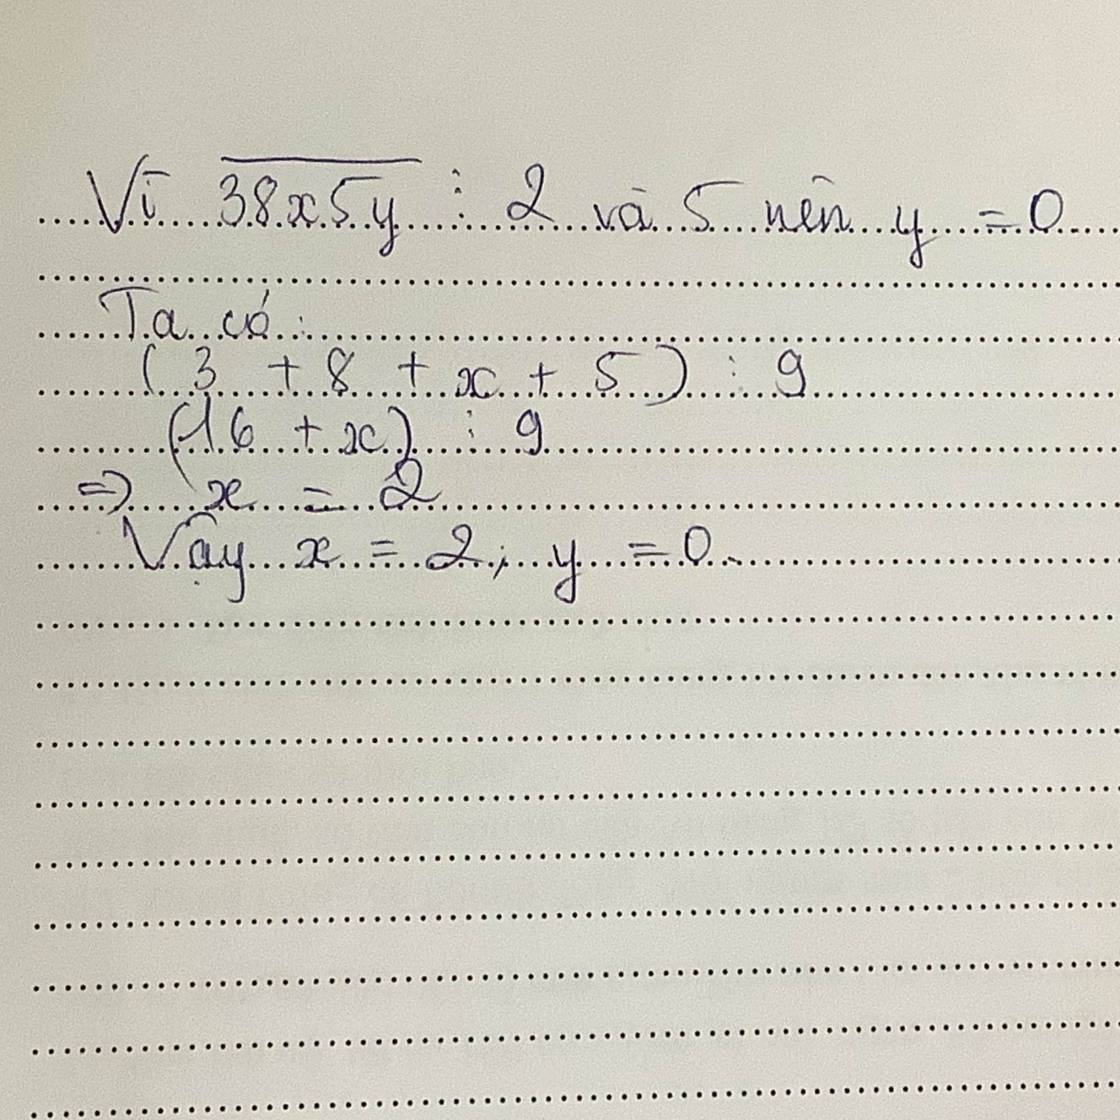 Vì \overline{38x5y} ⋮ 2 và 5 nên y = 0
Ta có :
(3 + 8 + x + 5) ⋮ 9
(16 + x) ⋮ 9
=> x = 2
Vậy x = 2; y = 0.